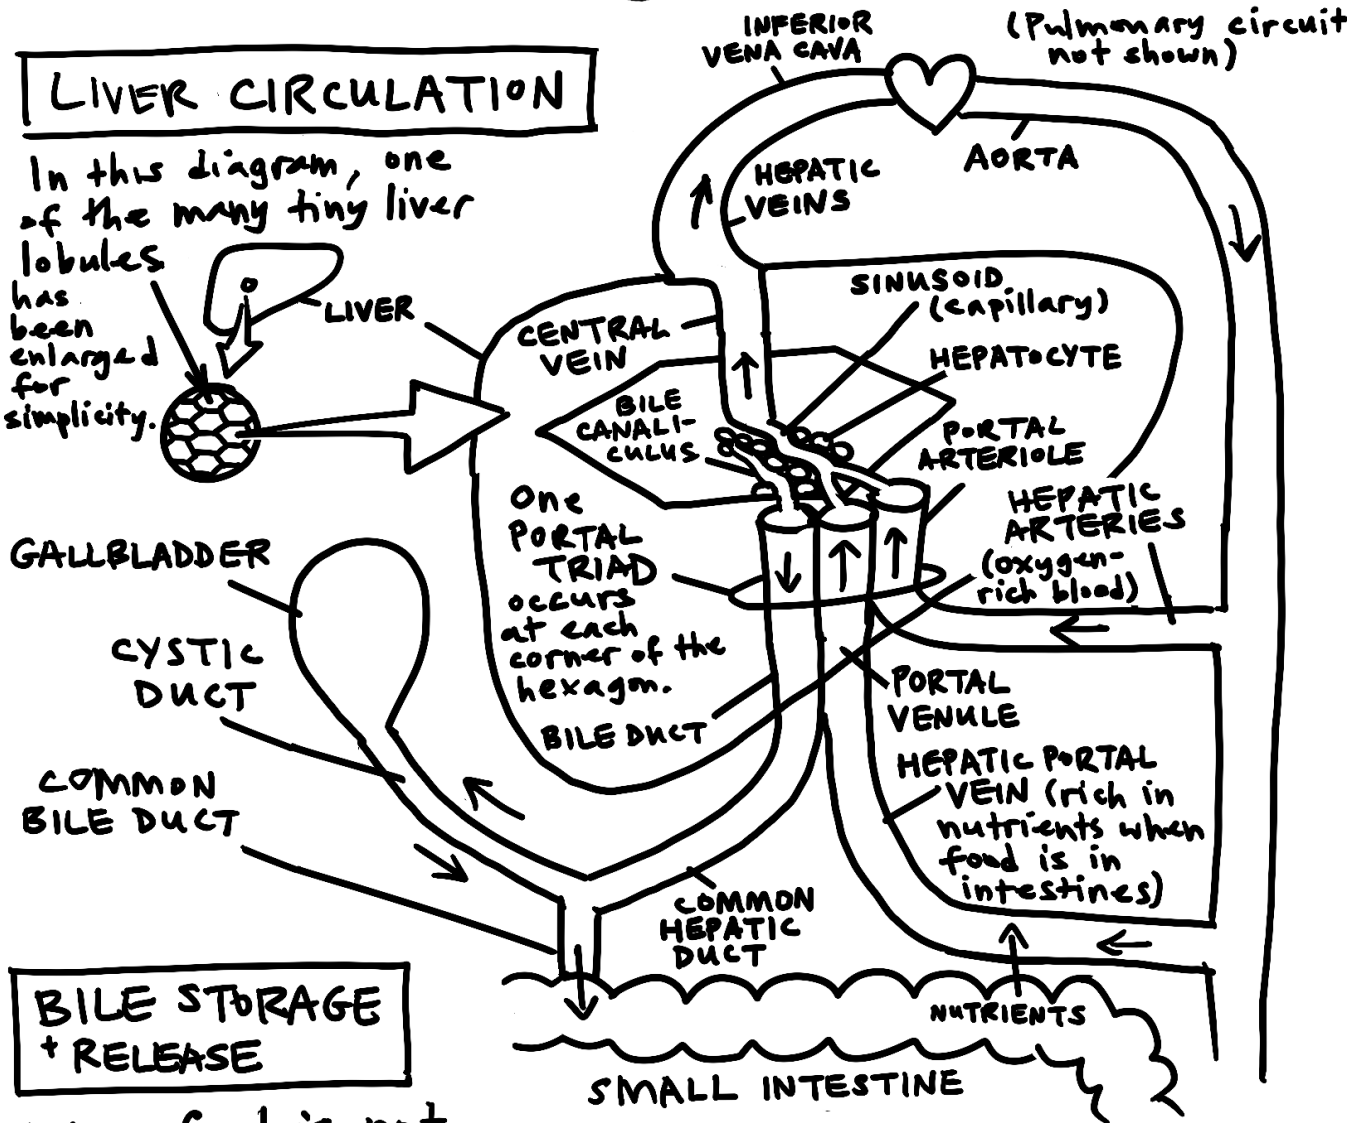 LIVER CIRCULATION
In this diagram, one
of the many tiny liver
lobules
has
been
enlarged
for
simplicity.
LIVER
INFERIOR
VENA CAVA
(Pulmonary circuit
not shown)
AORTA
HEPATIC
VEINS
SINUSOID
(capillary)
CENTRAL
VEIN
HEPATOCYTE
BILE
CANALI-
CULUS
PORTAL
ARTERIOLE
HEPATIC
ARTERIES
(oxygen-
rich blood)
One
PORTAL
TRIAD
occurs
at each
corner of the
hexagon.
GALLBLADDER
CYSTIC
DUCT
COMMON
BILE DUCT
BILE DUCT
PORTAL
VENULE
HEPATIC PORTAL
VEIN (rich in
nutrients when
food is in
intestines)
COMMON
HEPATIC
DUCT
NUTRIENTS
SMALL INTESTINE
BILE STORAGE
+ RELEASE